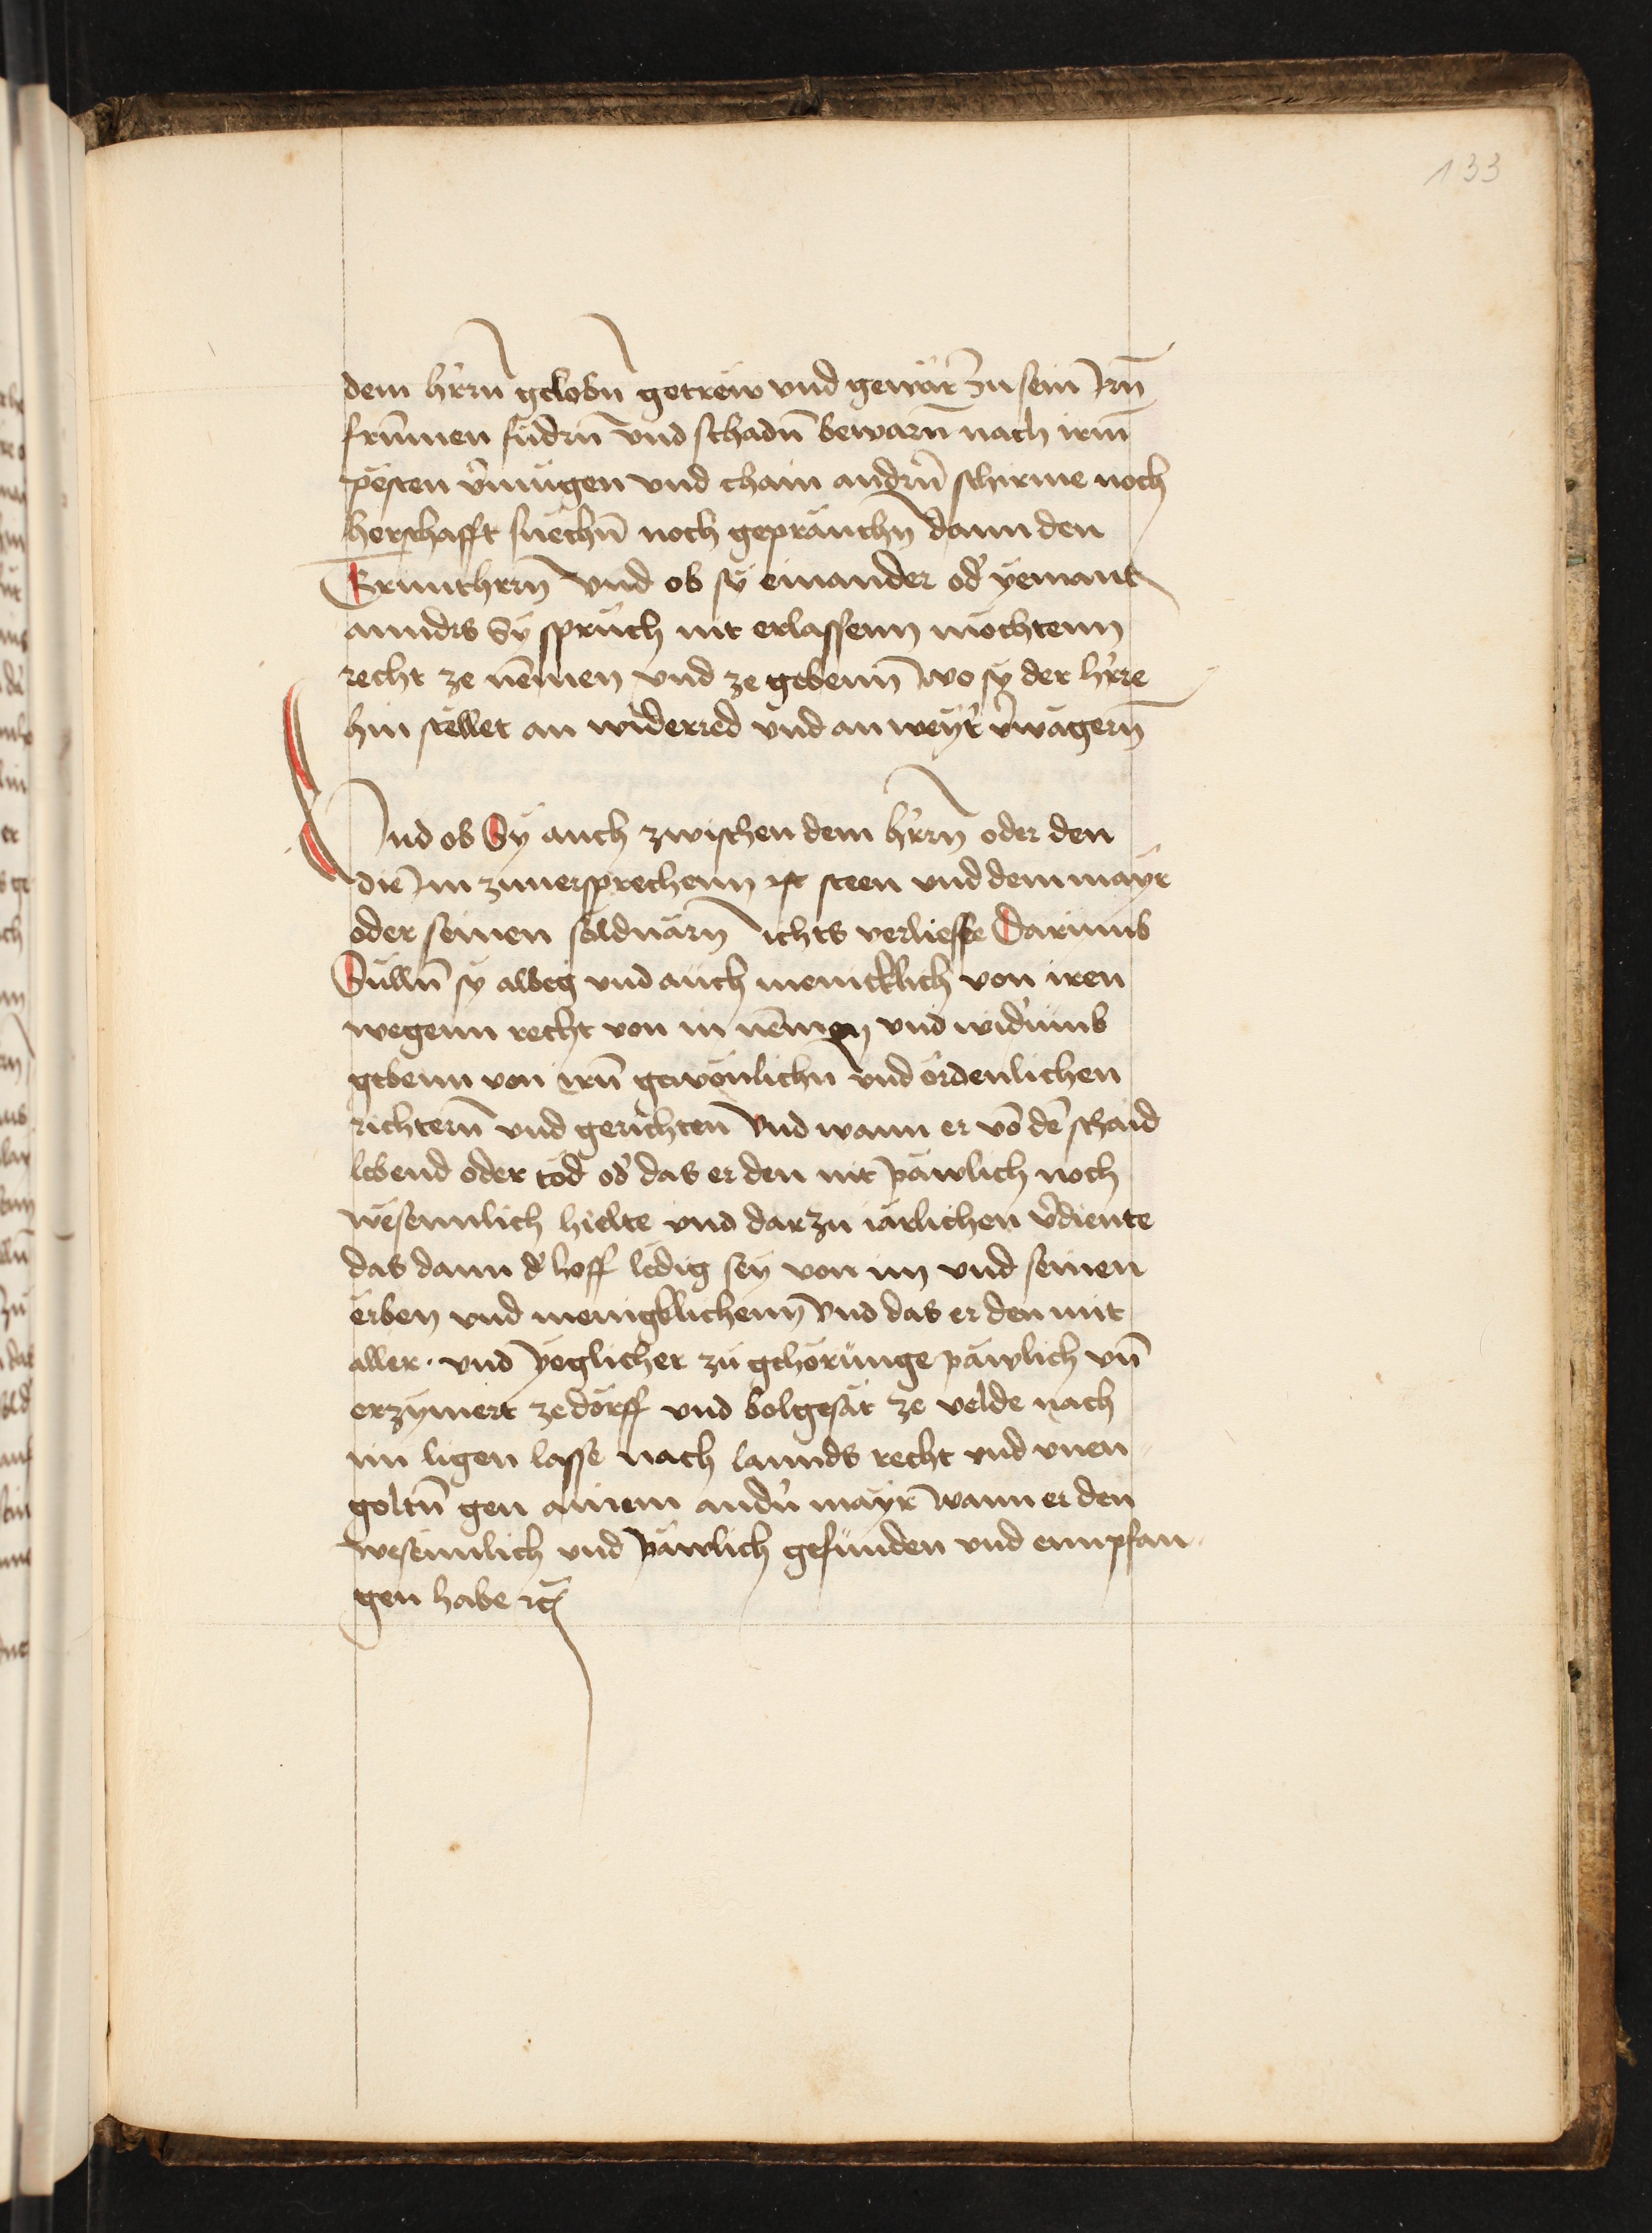 133
dem hr̄rn gelobn̄ getrew vnd gewär zu sein Irn̄
frūmen fudrn̄ vnd schadn̄ bewarn̄ nach irm̄
pësten v̄mügen vnd chain andrn̄ schirme noch
herschafft suechn̄ noch gepräuchn̄ dann den
Grunthrrn̄ Vnd ob sÿ einander od' yemant
annders Sÿ sprüch nit erlassenn möchtenn
recht ze nēmen vnd ze gebenn̄ wo sÿ der hr̄re
hin stellet an widerred vnd an weÿt' v̄wägern̄
Vnd ob Sÿ auch zwischen dem hr̄rn̄ oder den
die Im zuuersprechenn ist steen vnd dem mayr
oder seinen söldnärn̄ ichts verliesse Darumb
Sulln̄ sÿ albeg vnd auch menicklich von iren
wegenn recht von in nēmen vnd wid'umb
gebenn von irn̄ gewönlichn vnd ördenlichen
richtern̄ vnd gerichten Vnd wann er vō dē schaid
lebend oder töd od' das er den nit päwlich noch
wësennlich hielte vnd darzu iärlichen v̄diente
das dann d' hoff ledig seÿ von im vnd seinen
erben vnd menigklichenn̄ Vnd das er den mit
aller · vnd yeglicher zu gehörunge päwlich vn̄
erzymert ze dorff vnd bolgesät ze velde nach
im ligen lasse nach lannds recht vnd vnen
goltn̄ gen ainem andn̄ mayr wann er den
wesennlich vnd päwlich gefunden vnd emmpfan
gen habe rc̄